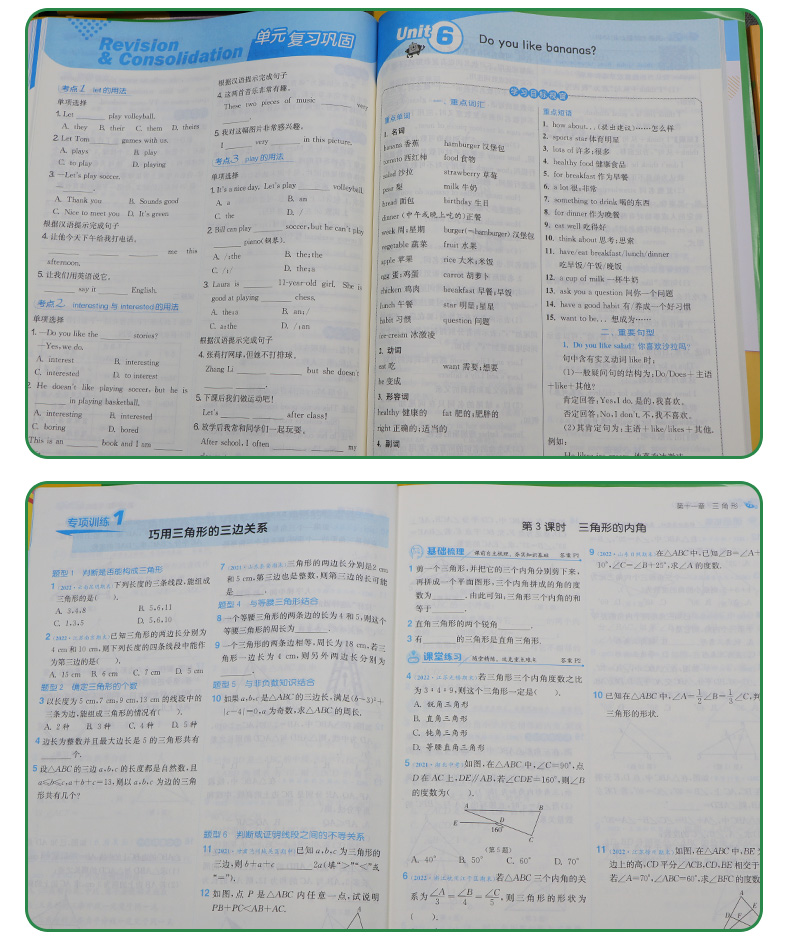 Revision
& Consolidation
单元复习巩固
考点1 let 的用法
单项选择
1. Let ______ play volleyball.
A. they B. their C. them D. theirs
2. Let Tom ______ games with us.
A. plays B. play
C. to play D. playing
3. —Let's play soccer.
—______.
A. Thank you B. Sounds good
C. Nice to meet you D. It's green
根据汉语提示完成句子
4. 让他今天下午给我打电话。
______ ______ ______ me this
afternoon.
5. 让我们用英语说它。
______ say it ______ English.
考点2 interesting 与 interested 的用法
单项选择
1. —Do you like the ______ stories?
—Yes, we do.
A. interest B. interesting
C. interested D. to interest
2. He doesn't like playing soccer, but he is
______ in playing basketball.
A. interesting B. interested
C. boring D. bored
This is an ______ book and I am ______
根据汉语提示完成句子
4. 这两首音乐非常有趣。
These two pieces of music ______ very
______.
5. 我对这幅图片非常感兴趣。
I ______ very ______ in this picture.
考点3 play 的用法
单项选择
1. It's a nice day. Let's play ______ volleyball.
A. a B. an
C. the D. /
2. Bill can play ______ soccer, but he can't play
______ piano(钢琴).
A. /;the B. the;the
C. /;/ D. the;a
3. Laura is ______ 11-year-old girl. She is
good at playing ______ chess.
A. the;a B. an;/
C. a;the D. /;an
根据汉语提示完成句子
4. 张莉打网球,但她不打排球。
Zhang Li ______ ______ but she doesn't
______ ______.
5. 下课后我们做运动吧!
Let's ______ ______ after class!
6. 放学后我常和同学们一起玩耍。
After school, I often ______ ______ my
Unit 6 Do you like bananas?
学习目标视窗
一、重点词汇
重点单词
1. 名词
banana 香蕉 hamburger 汉堡包
tomato 西红柿 food 食物
salad 沙拉 strawberry 草莓
pear 梨 milk 牛奶
bread 面包 birthday 生日
dinner (中午或晚上吃的)正餐
week 周;星期 burger(=hamburger) 汉堡包
vegetable 蔬菜 fruit 水果
apple 苹果 rice 大米;米饭
egg 蛋;鸡蛋 carrot 胡萝卜
chicken 鸡肉 breakfast 早餐;早饭
lunch 午餐 star 明星;星星
habit 习惯 question 问题
ice-cream 冰激凌
2. 动词
eat 吃 want 需要;想要
be 变成
3. 形容词
healthy 健康的 fat 肥的;肥胖的
right 正确的;适当的
4. 副词
重点短语
1. how about... (提出建议)……怎么样
2. sports star 体育明星
3. lots of 许多;很多
4. healthy food 健康食品
5. for breakfast 作为早餐
6. a lot 很;非常
7. something to drink 喝的东西
8. for dinner 作为晚餐
9. eat well 吃得好
10. think about 思考;思索
11. have/eat breakfast/lunch/dinner
吃早饭/午饭/晚饭
12. a cup of milk 一杯牛奶
13. ask you a question 问你一个问题
14. have a good habit 有/养成一个好习惯
15. want to be... 想成为……
二、重要句型
1. Do you like salad? 你喜欢沙拉吗?
句中含有实义动词 like 时,
(1)一般疑问句的结构为:Do/Does+主语
+like+其他?
肯定回答:Yes, I do. 是的,我喜欢。
否定回答:No, I don't. 不,我不喜欢。
(2)其肯定句为:主语+like/likes+其他.
例如:
专项训练1 巧用三角形的三边关系
题型1 判断是否能构成三角形
1 下列长度的三条线段,能组成
三角形的是( ).
A. 3,4,8 B. 5,6,11
C. 1,3,5 D. 5,6,10
2 已知三角形的两边长分别为
4 cm 和 10 cm,则下列长度的四条线段中能作
为第三边的是( ).
A. 15 cm B. 6 cm C. 7 cm D. 5 cm
题型2 确定三角形的个数
3 以长度为 5 cm,7 cm,9 cm,13 cm 的线段中的
三条为边,能组成三角形的情况有( ).
A. 2 种 B. 3 种 C. 4 种 D. 5 种
4 边长为整数并且最大边长是 5 的三角形共有
______个.
5 设△ABC 的三边 a,b,c 的长度都是自然数,且
a≤b≤c,a+b+c=13,则以 a,b,c 为边的三角
形共有几个?
7 三角形的两边长分别是2 cm
和 5 cm,第三边也是整数,则第三边的长可能
是______.
题型4 与等腰三角形结合
8 一个等腰三角形的两条边的长为 4 和 5,则这个
等腰三角形的周长为______.
9 一个三角形的两条边相等,周长为 18 cm,若三
角形一边长为 4 cm,则另外两边长分别为
______.
题型5 与非负数知识结合
10 如果 a,b,c 是△ABC 的三边长,满足(b−3)²+
|c−4|=0,a 为奇数,求△ABC 的周长.
题型6 判断或证明线段之间的不等关系
11 已知 a,b,c 为三角形的
三边,则 b+a−c______2a(填“>”“<”或
“=”).
12 如图,点 P 是△ABC 内任意一点,试说明
PB+PC<AB+AC.
A
第十一章 三角形
第3课时 三角形的内角
基础梳理 课前自主梳理,落实知识基础 答案 P5
1 剪一个三角形,并把它的三个内角分别剪下来,
再拼成一个平面图形,三个内角拼成的角的度
数为______.由此可知:三角形三个内角的和
等于______.
2 直角三角形的两个锐角______.
3 有______的三角形是直角三角形.
课堂练习 随堂精练,攻克重点难点 答案 P5
4 若三角形三个内角度数之比
为 3∶4∶9,则这个三角形一定是( ).
A. 锐角三角形
B. 直角三角形
C. 钝角三角形
D. 等腰直角三角形
5 如图,在△ABC 中,∠C=90°,点
D 在 AC 上,DE∥AB,若∠CDE=160°,则∠B
的度数为( ).
A B
E D
160°
C
(第5题)
A. 40° B. 50° C. 60° D. 70°
6 若△ABC 三个内角的关
系为 ∠A/3=∠B/4=∠C/5,则三角形的形状为
( ).
9 在△ABC 中,已知∠B=∠A+
10°,∠C=∠B+25°,求∠A 的度数.
10 已知在△ABC 中,∠A=1/2∠B=1/3∠C,判
三角形的形状.
11 如图,在△ABC 中,BE
边上的高,CD 平分∠ACB,CD,BE 相交于
若∠A=70°,∠ABC=60°,求∠BFC 的度数
A
E
D F